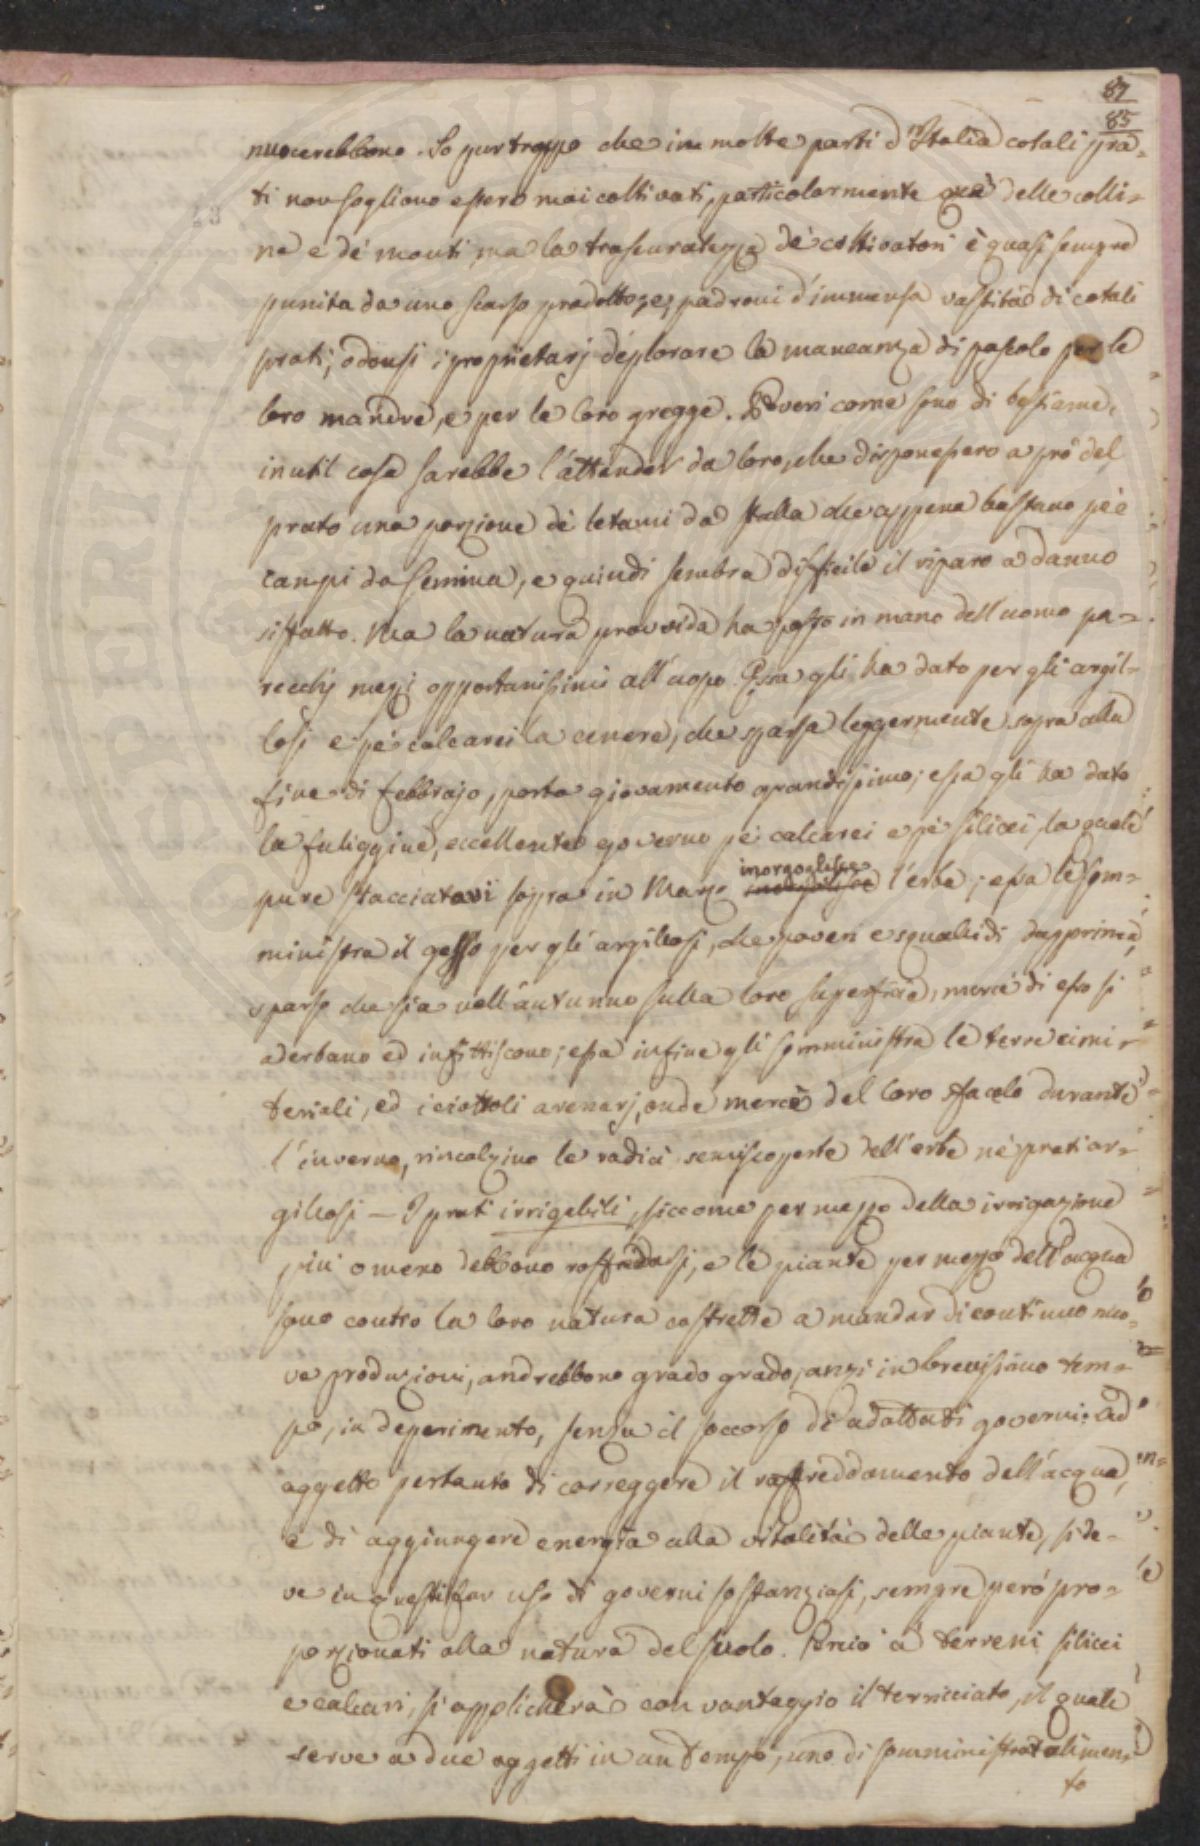 87
85
nuocerebbono. So pur troppo che in molte parti d'Italia cotali pra=
ti non sogliono essere mai coltivati, particolarmente que' delle colli=
ne e de' monti, ma la trascuratezza de' coltivatori è quasi sempre
punita da uno scarso prodotto, e padroni d'immensa vastità di cotali
prati, odonsi i proprietarj deplorare la mancanza di pascolo per le
loro mandre, e per le loro gregge. Poveri come sono di bestiame,
inutil cosa sarebbe l'attender da loro, che disponessero a prò del
prato una porzione de' letami da stalla che appena bastano pe'
campi da semina, e quindi sembra difficile il riparo a danno
siffatto. Ma la natura provvida ha posto in mano dell'uomo pa=
recchj mezzi opportunissimi all'uopo. Essa gli ha dato per gli argil=
losi e pe' calcarei la cenere, che sparsa leggermente sopra alla
fine di febbrajo, porta giovamento grandissimo; essa gli ha dato
la fuliggine, eccellente governo pe' calcarei e pe' silicei, la quale
pure stacciatavi sopra in Marzo inorgoglisce l'erba; essa le som=
ministra il gesso per gli argillosi, che poveri e squallidi dapprima,
sparso che sia nell'autunno sulla loro superficie, mercè di esso si
aderbano ed infittiscono; essa infine gli somministra le terre cimi=
teriali, ed i ciottoli arenarj, onde mercè del loro sfacelo durante
l'inverno, rincalzino le radici semiscoperte dell'erbe ne' prati ar=
gillosi — I prati irrigabili, siccome per mezzo della irrigazione
più o meno debbono raffreddarsi, e le piante per mezzo dell'acqua
sono contro la loro natura costrette a mandar di continuo nuo=
ve produzioni, andrebbono grado grado, anzi in brevissimo tem=
po, in deperimento, senza il soccorso di adattati governi. Ad
oggetto pertanto di correggere il raffreddamento dell'acqua,
e di aggiungere energia alla vitalità delle piante, si de=
ve in questi far uso di governi sostanziosi, sempre però pro=
porzionati alla natura del suolo. Perciò a' terreni silicei
e calcari, si applicherà con vantaggio il terricciato, il quale
serve a due oggetti in un tempo, uno di somministrar alimen=
to